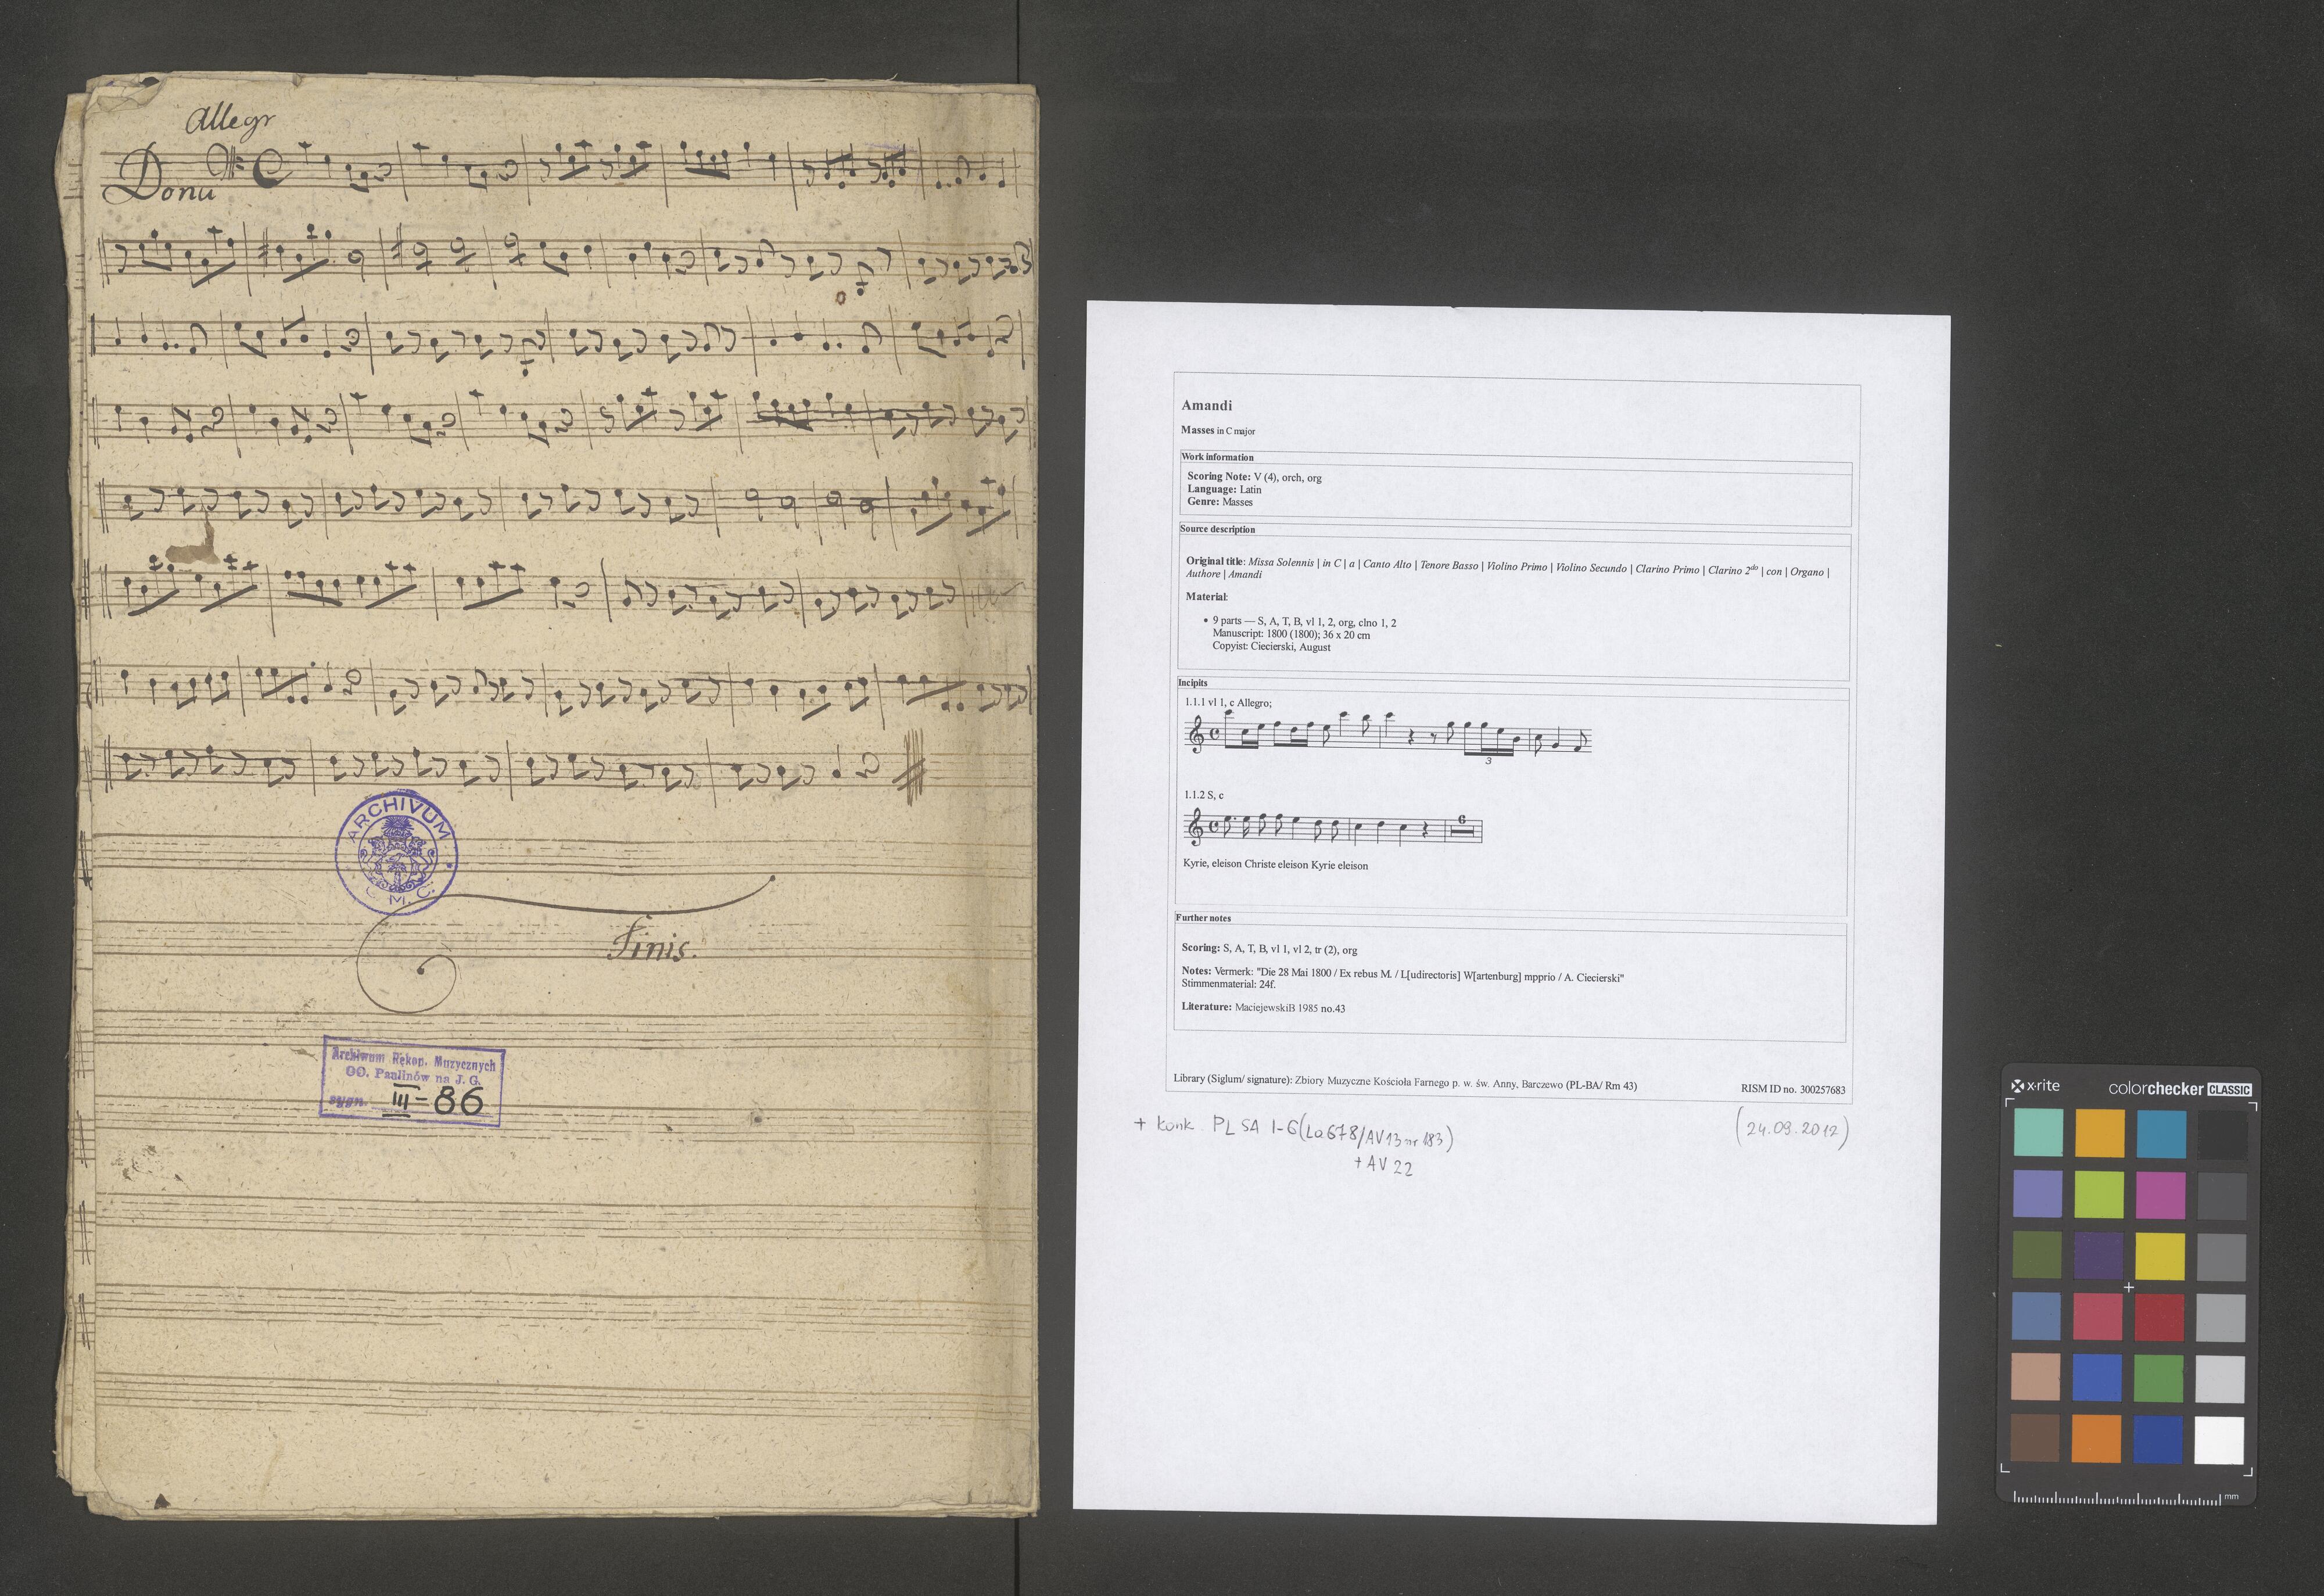 Allegr
Donu
ARCHIVUM
C. M. C.
Finis.
Archiwum Rękop. Muzycznych
OO. Paulinów na J. G.
sygn. III-86
Amandi
Masses in C major
Work information
Scoring Note: V (4), orch, org
Language: Latin
Genre: Masses
Source description
Original title: Missa Solennis | in C | a | Canto Alto | Tenore Basso | Violino Primo | Violino Secundo | Clarino Primo | Clarino 2do | con | Organo |
Authore | Amandi
Material:
• 9 parts — S, A, T, B, vl 1, 2, org, clno 1, 2
Manuscript: 1800 (1800); 36 x 20 cm
Copyist: Ciecierski, August
Incipits
1.1.1 vl 1, c Allegro;
3
1.1.2 S, c
6
Kyrie, eleison Christe eleison Kyrie eleison
Further notes
Scoring: S, A, T, B, vl 1, vl 2, tr (2), org
Notes: Vermerk: "Die 28 Mai 1800 / Ex rebus M. / L[udirectoris] W[artenburg] mpprio / A. Ciecierski"
Stimmenmaterial: 24f.
Literature: MaciejewskiB 1985 no.43
Library (Siglum/ signature): Zbiory Muzyczne Kościoła Farnego p. w. św. Anny, Barczewo (PL-BA/ Rm 43)
RISM ID no. 300257683
+ konk. PL SA 1-6 (La678/AV13 nr 183)
+ AV 22
(24.09.2012)
x·rite colorchecker CLASSIC
mm